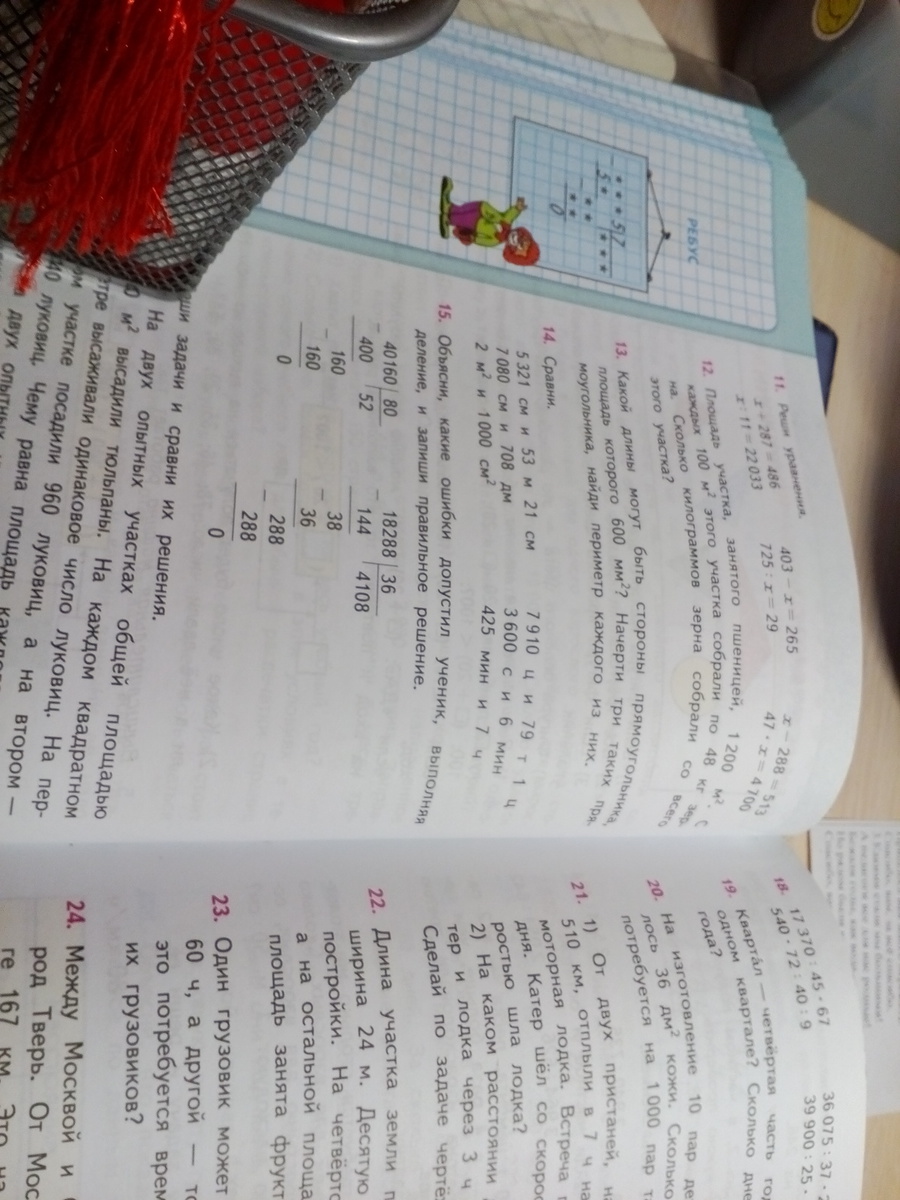 РЕБУС
***5|7
5* |***
**
**
0
11. Реши уравнения.
x + 287 = 486    403 − x = 265    x − 288 = 513
x : 11 = 22 033    725 : x = 29    47 · x = 4 700
12. Площадь участка, занятого пшеницей, 1 200 м². С
каждых 100 м² этого участка собрали по 48 кг зер-
на. Сколько килограммов зерна собрали со всего
этого участка?
13. Какой длины могут быть стороны прямоугольника,
площадь которого 600 мм²? Начерти три таких пря-
моугольника, найди периметр каждого из них.
14. Сравни.
5 321 см и 53 м 21 см    7 910 ц и 79 т 1 ц
7 080 см и 708 дм    3 600 с и 6 мин
2 м² и 1 000 см²    425 мин и 7 ч
15. Объясни, какие ошибки допустил ученик, выполняя
деление, и запиши правильное решение.
− 40160|80    − 18288|36
400 |52    144 |4108
− 160    − 38
160    36
0    − 288
288
0
задачи и сравни их решения.
На двух опытных участках общей площадью
м² высадили тюльпаны. На каждом квадратном
высаживали одинаковое число луковиц. На пер-
участке посадили 960 луковиц, а на втором —
луковиц. Чему равна площадь
двух опытных
18. 17 370 : 45 · 67    36 075 : 37 ·
540 · 72 : 40 : 9    39 900 : 25 ·
19. Квартáл — четвёртая часть
одном квартале? Сколько
года?
20. На изготовление 10 пар
лось 36 дм² кожи. Сколько
потребуется на 1 000 пар
21. 1) От двух пристаней,
510 км, отплыли в 7 ч
моторная лодка. Встреча
дня. Катер шёл со
ростью шла лодка?
2) На каком
тер и лодка через 3 ч
Сделай по задаче
22. Длина участка земли
ширина 24 м. Десятую
постройки. На
а на остальной
площадь занята
23. Один грузовик может
60 ч, а другой —
это потребуется
их грузовиков?
24. Между Москвой и
род Тверь. От
ге 167 км.